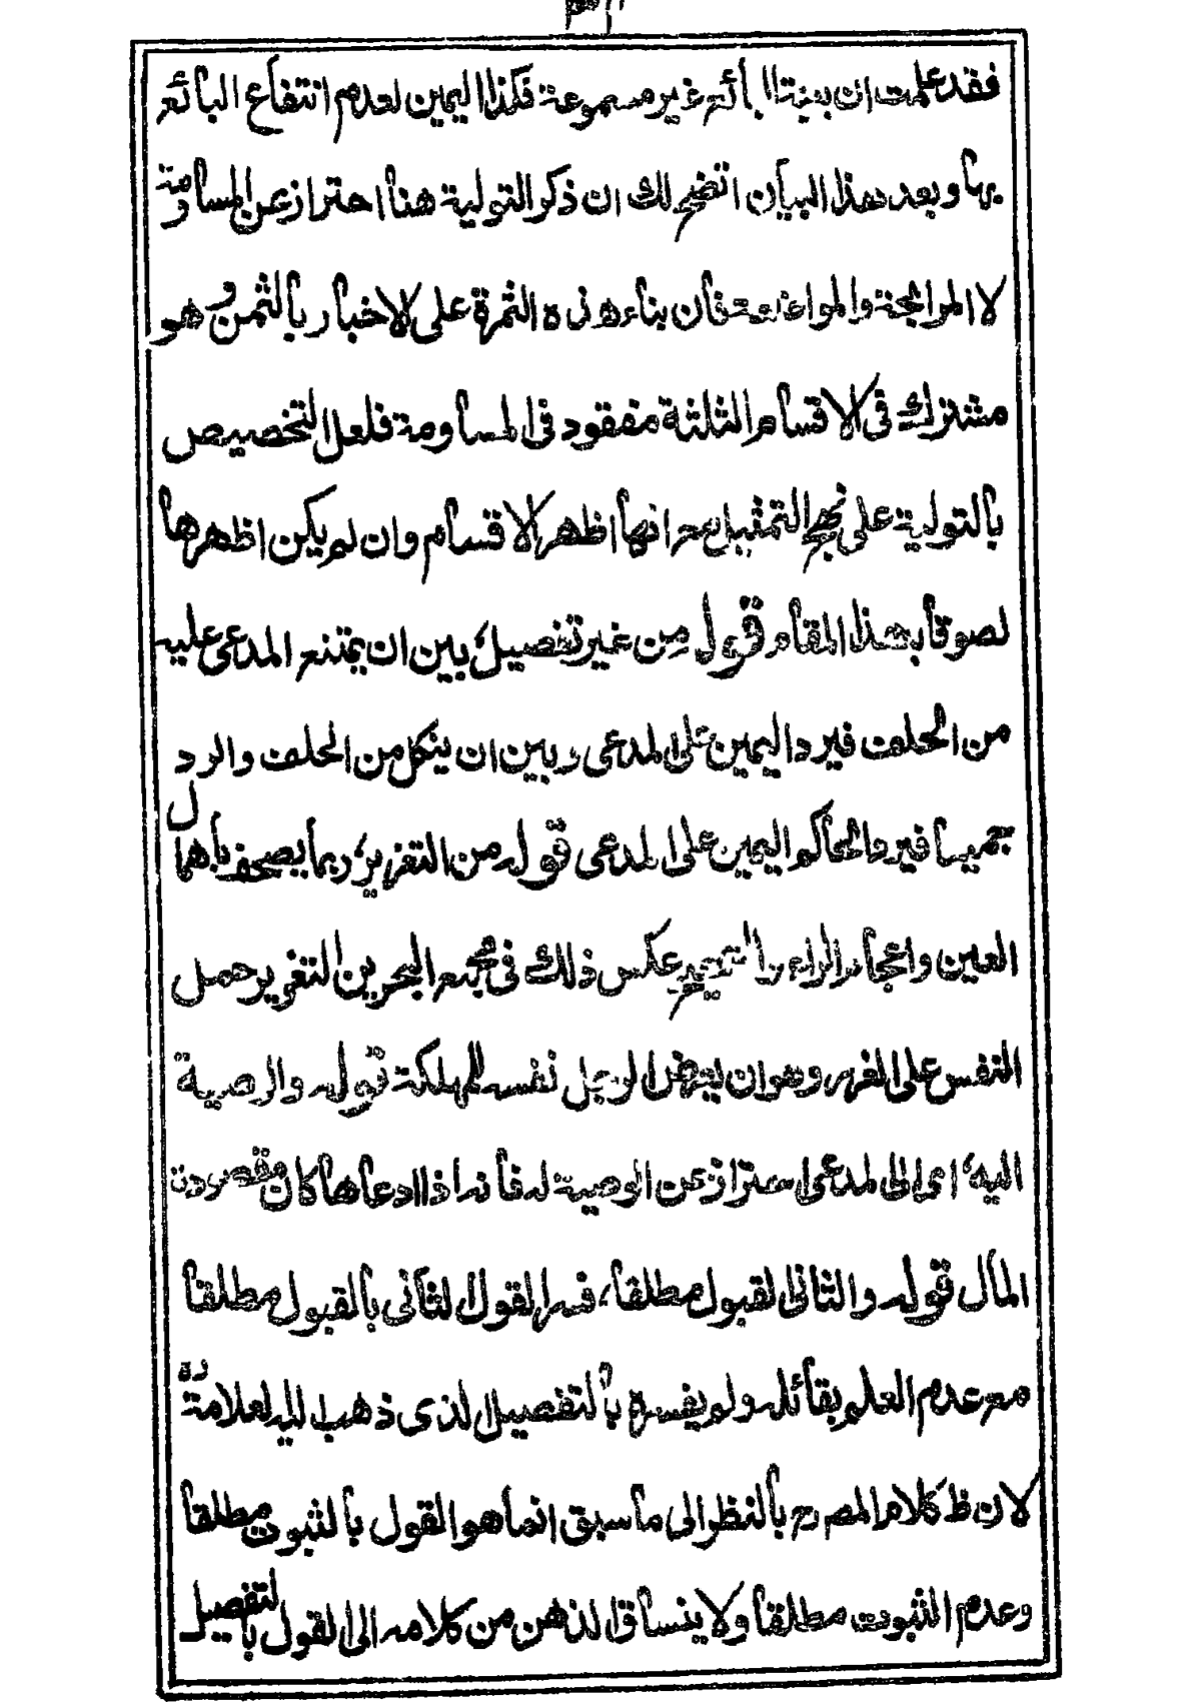 فقد علمت ان بينة البائع غير مسموعة فكذا اليمين لعدم انتفاع البائع
بها و بعد هذا البيان اتضح لك ان ذكر التولية هنا احتراز عن المساومة
لا المرابحة والمواضعة فان بناء هذه الثمرة على الاخبار بالثمن و هو
مشترك في الاقسام الثلثة مفقود في المساومة فلعل التخصيص
بالتولية على نهج التمثيل مع انها اظهر الاقسام وان لم يكن اظهرها
لصوقا بهذا المقام قوله من غير تفصيل بين ان يمتنع المدعى عليه
من الحلف فيرد اليمين على المدعى و بين ان ينكل من الحلف والرد
جميعا فيرد الحاكم اليمين على المدعى قوله من التغرير ربما يصحف باهمال
العين واعجام الراء والصحيح عكس ذلك في مجمع البحرين التغرير حمل
النفس على الغرر وهو ان يعرض الرجل نفسه للمهلكة قوله والوصية
اليه اى الى المدعى احتراز عن الوصية له فانه اذا ادعاها كان مقصوده
المال قوله والثانى القبول مطلقا فسر القول الثانى بالقبول مطلقا
مع عدم العلم بقائله ولم يفسره بالتفصيل الذى ذهب اليه العلامة ره
لان ظ كلام المصـ رح بالنظر الى ما سبق انما هو القول بالثبوت مطلقا
وعدم الثبوت مطلقا ولا ينساق الذهن من كلامه الى القول بالتفصيل